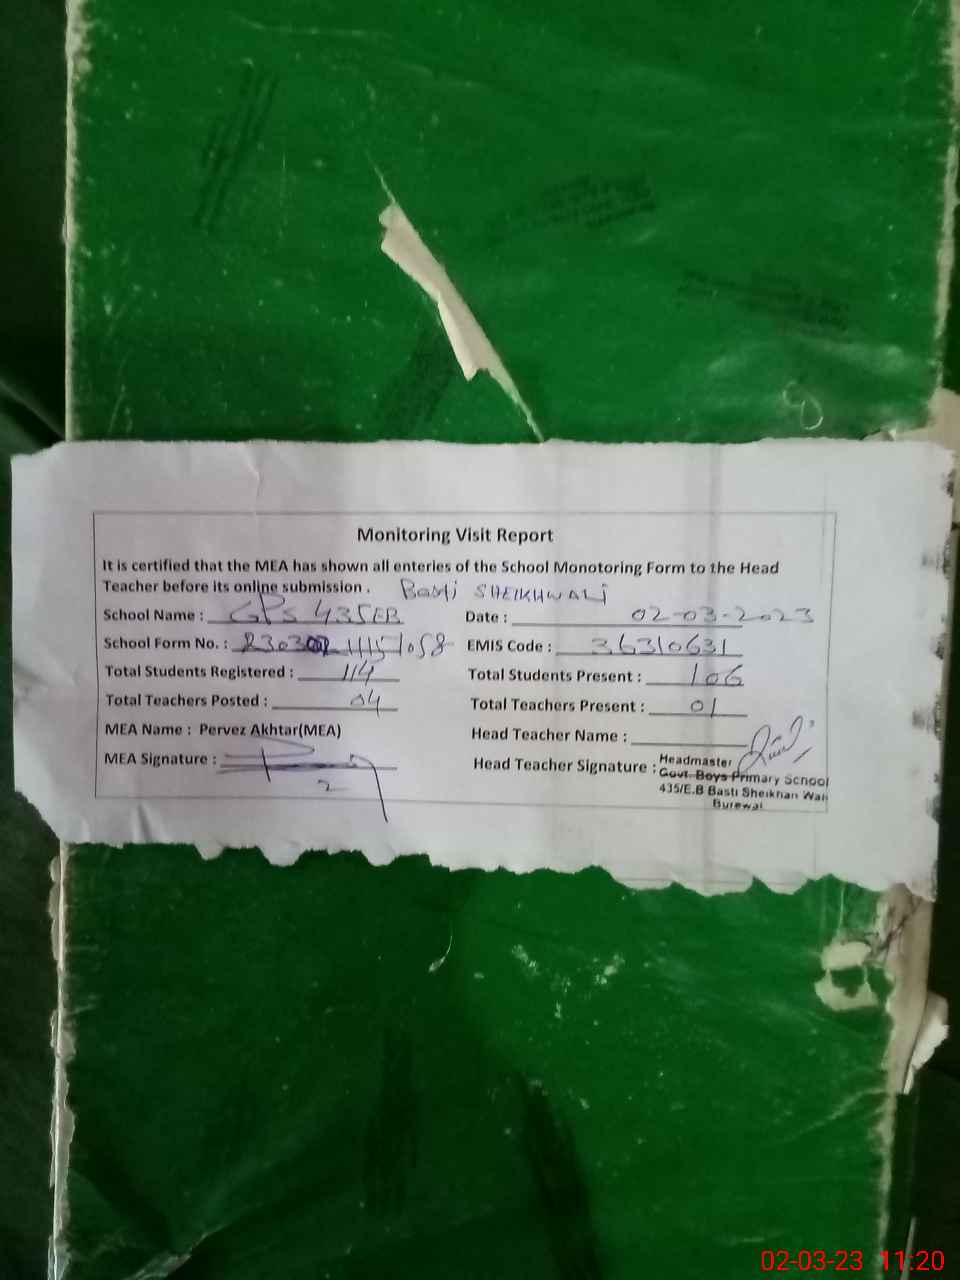 Monitoring Visit Report
It is certified that the MEA has shown all enteries of the School Monotoring Form to the Head
Teacher before its online submission . Basti SHEIKHWALI
School Name : GPS 435EB Date : 02-03-2023
School Form No. : EMIS Code : 36310631
Total Students Registered : 114 Total Students Present : 106
Total Teachers Posted : 04 Total Teachers Present : 01
MEA Name : Pervez Akhtar(MEA) Head Teacher Name :
MEA Signature : Head Teacher Signature :
Headmaster
Govt. Boys Primary School
435/E.B Basti Sheikhan Wali
Burewal
02-03-23 11:20